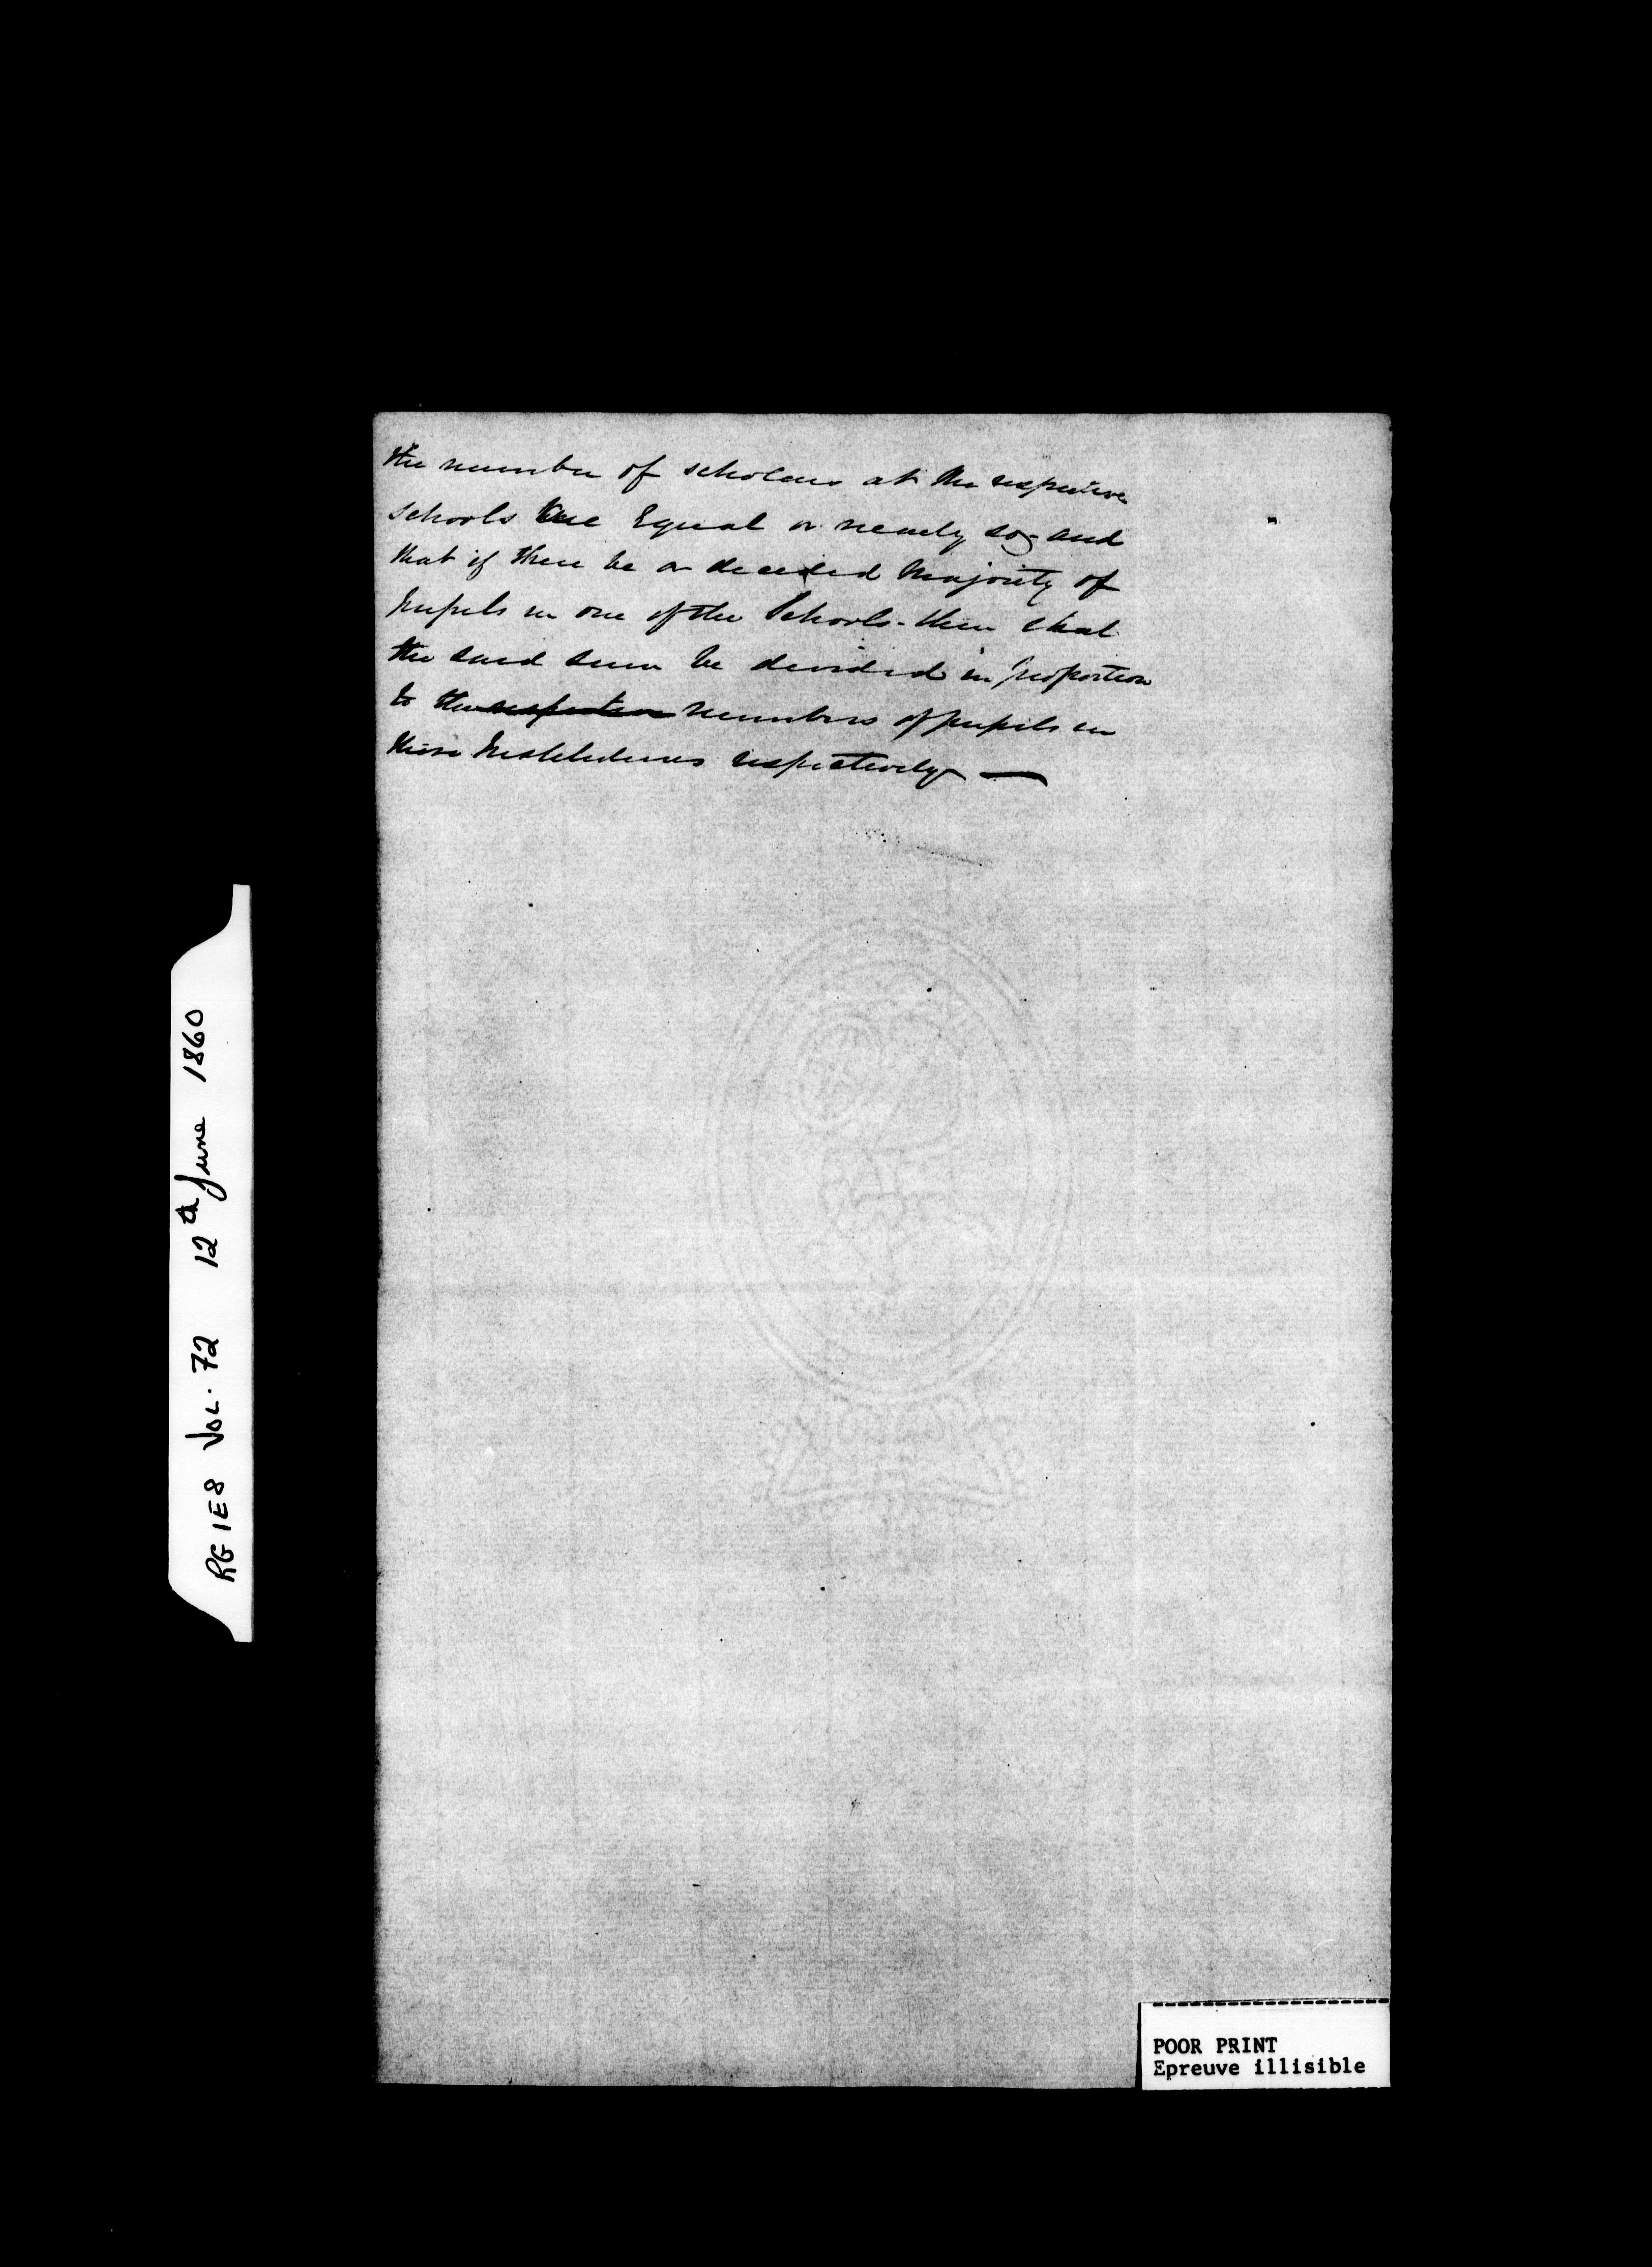 the number of scholars at the respective
schools are Equal or nearly so - and
that if there be a decided Majority of
pupils in one of the Schools - then that
the said sum be divided in proportion
to the respective numbers of pupils in
those Institutions respectively —
RG 1E8 VOL. 72 12th June 1860
POOR PRINT
Epreuve illisible